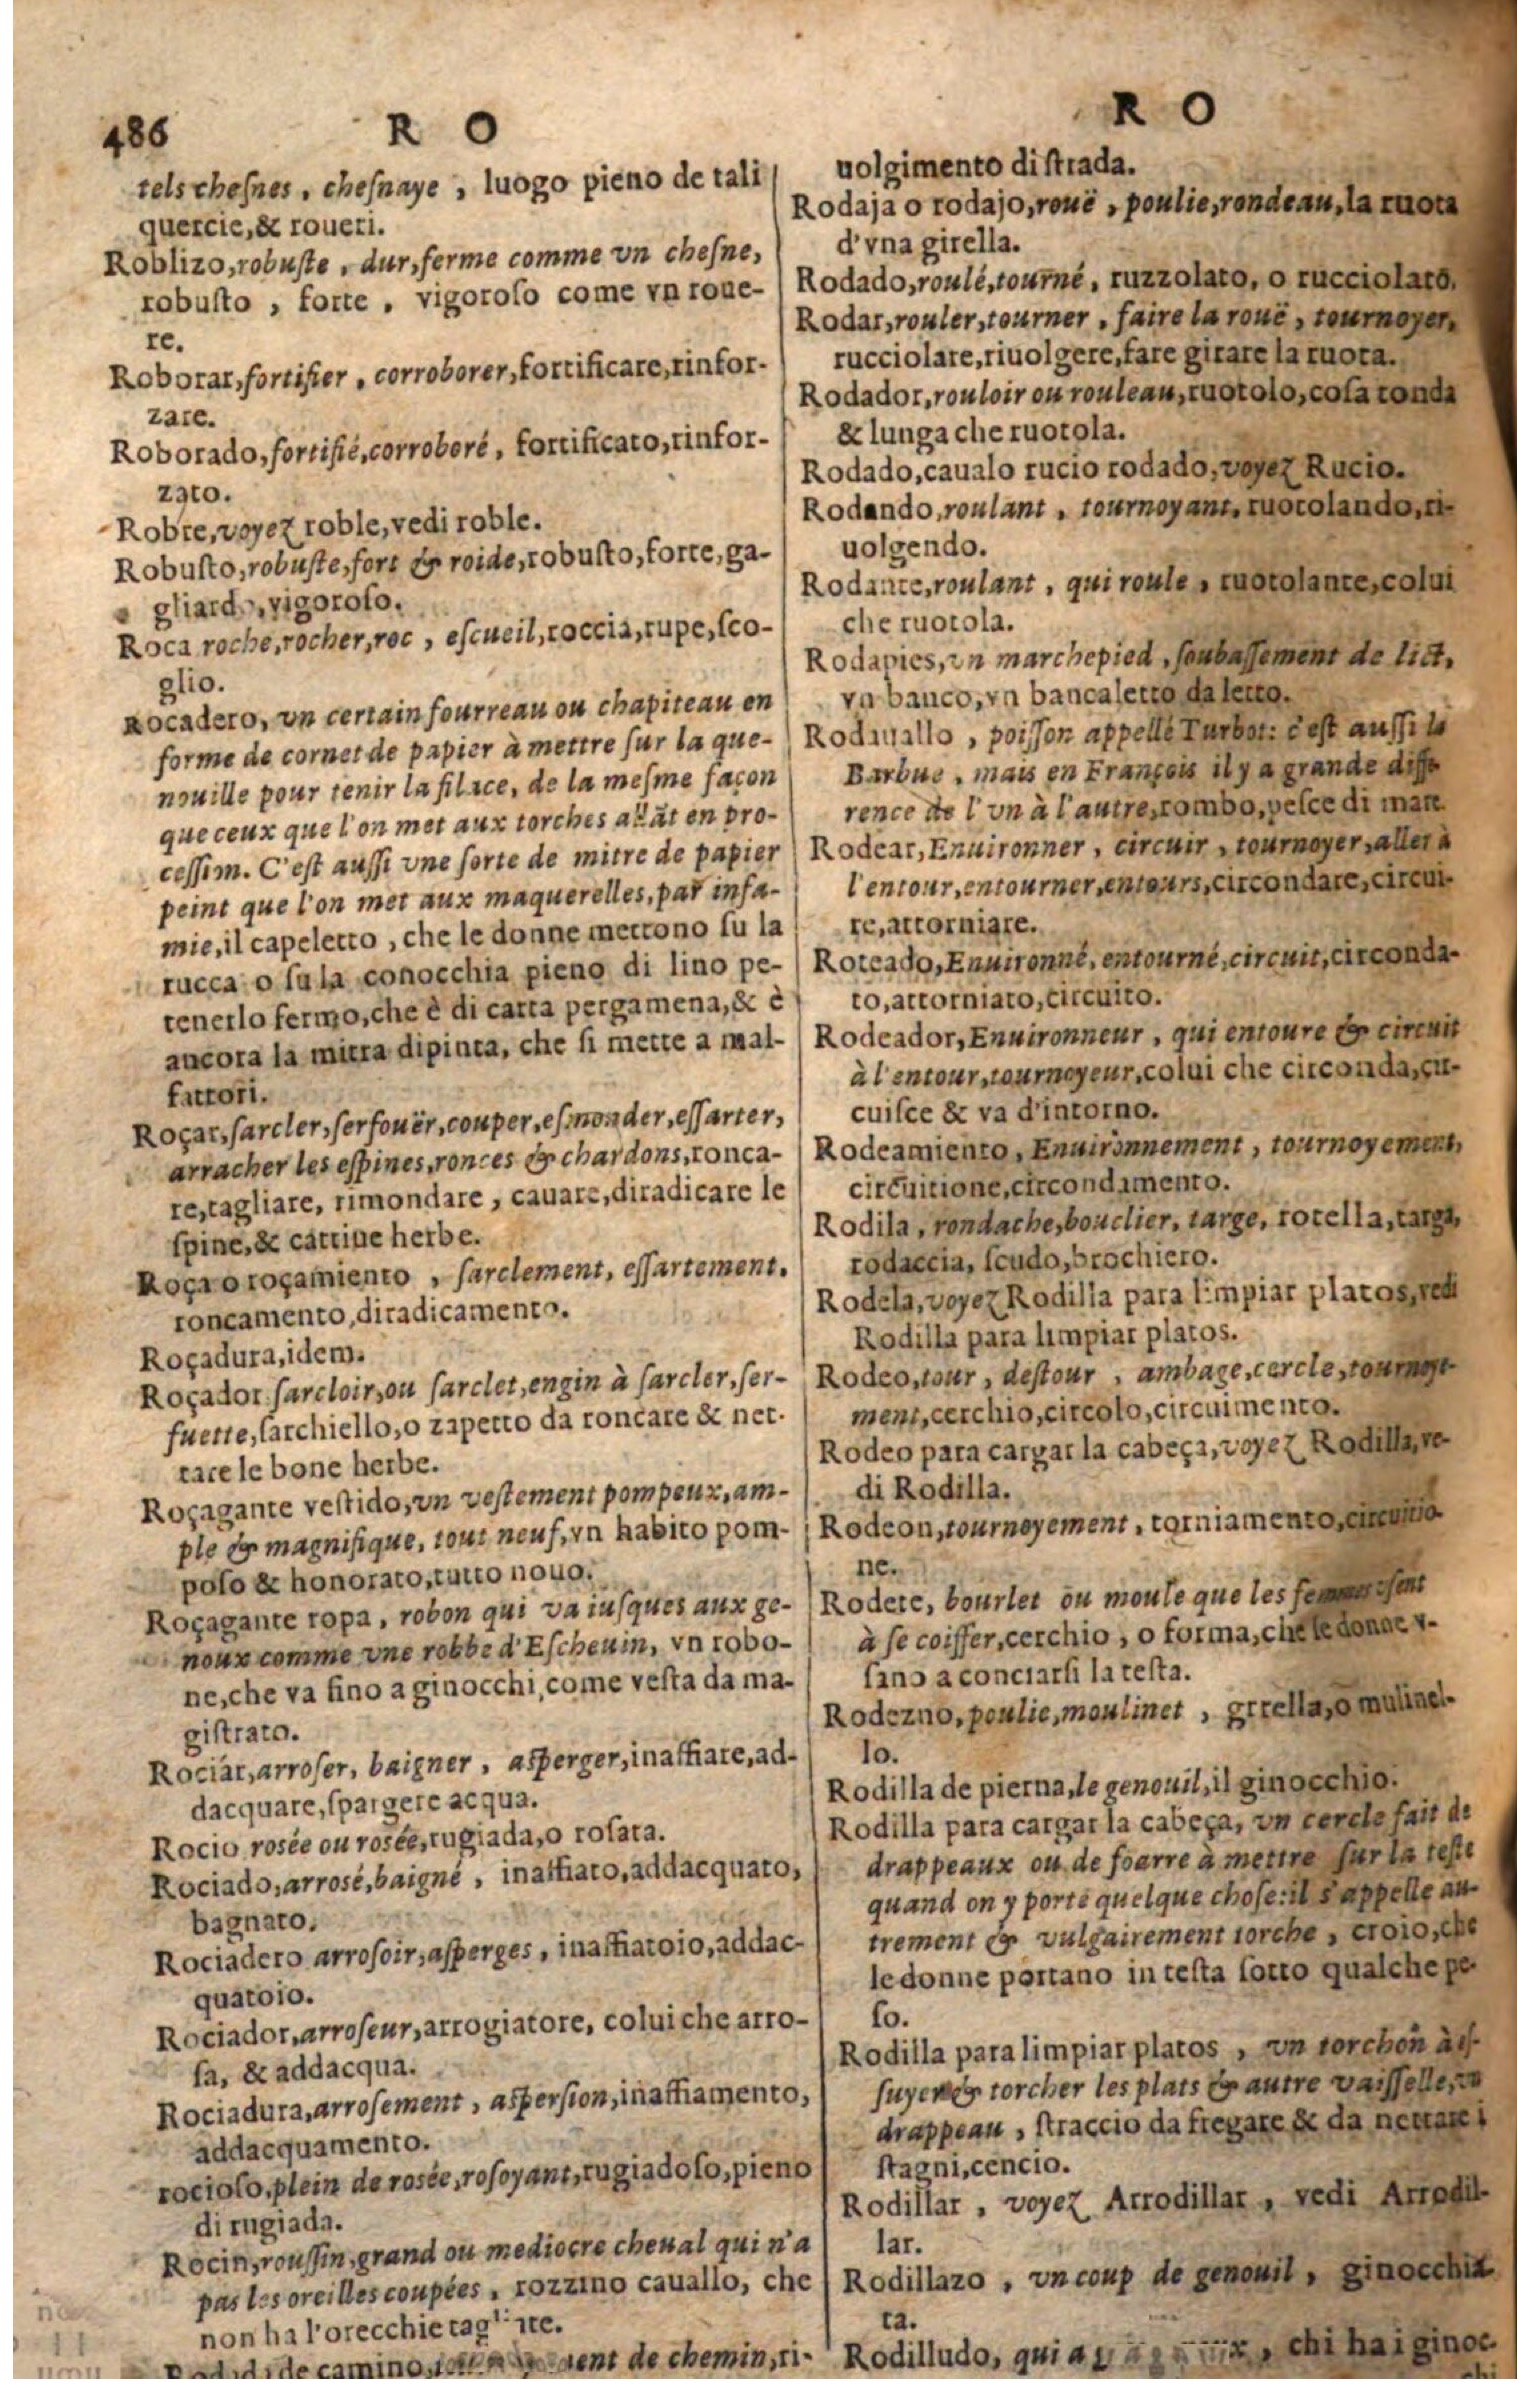 486
R O
tels chesnes, chesnaye, luogo pieno de tali
quercie,& roueri.
Roblizo,robuste, dur,ferme comme vn chesne,
robusto, forte, vigoroso come vn roue-
re.
Roborar,fortifier, corroborer,fortificare,rinfor-
zare.
Roborado,fortifié,corroboré, fortificato,rinfor-
zato.
Robre,voyez roble,vedi roble.
Robusto,robuste,fort & roide,robusto,forte,ga-
gliardo,vigoroso.
Roca roche,rocher,roc, escueil,roccia,rupe,sco-
glio.
Rocadero, vn certain fourreau ou chapiteau en
forme de cornet de papier à mettre sur la que-
nouille pour tenir la filace, de la mesme façon
que ceux que l'on met aux torches allāt en pro-
cession. C'est aussi vne sorte de mitre de papier
peint que l'on met aux maquerelles, par infa-
mie,il capeletto, che le donne mettono su la
rucca o su la conocchia pieno di lino pe-
tenerlo fermo,che è di carta pergamena,& è
ancora la mitra dipinta, che si mette a mal-
fattori.
Roçar,sarcler,serfouër,couper,esmonder,essarter,
arracher les espines,ronces & chardons,ronca-
re,tagliare, rimondare, cauare,diradicare le
spine,& cattiue herbe.
Roça o roçamiento, sarclement, essartement.
roncamento,diradicamento.
Roçadura,idem.
Roçador sarcloir,ou sarclet,engin à sarcler,ser-
fuette,sarchiello,o zapetto da roncare & net-
tare le bone herbe.
Roçagante vestido,vn vestement pompeux,am-
ple & magnifique, tout neuf,vn habito pom-
poso & honorato,tutto nouo.
Roçagante ropa, robon qui va iusques aux ge-
noux comme vne robbe d'Escheuin, vn robo-
ne,che va fino a ginocchi,come vesta da ma-
gistrato.
Rociár,arroser, baigner, asperger,inaffiare,ad-
dacquare,spargere acqua.
Rocio rosée ou rosée,rugiada,o rosata.
Rociado,arrosé,baigné, inaffiato,addacquato,
bagnato.
Rociadero arrosoir,asperges, inaffiatoio,addac-
quatoio.
Rociador,arroseur,arrogiatore, colui che arro-
sa, & addacqua.
Rociadura,arrosement, aspersion,inaffiamento,
addacquamento.
rocioso,plein de rosée,rosoyant,rugiadoso,pieno
di rugiada.
Rocin,roussin,grand ou mediocre cheual qui n'a
pas les oreilles coupées, rozzino cauallo, che
non ha l'orecchie tagliate.
de camino, de chemin,ri-
R O
uolgimento di strada.
Rodaja o rodajo,rouë, poulie,rondeau,la ruota
d'vna girella.
Rodado,roulé,tourné, ruzzolato, o rucciolato.
Rodar,rouler,tourner, faire la rouë, tournoyer,
rucciolare,riuolgere,fare girare la ruota.
Rodador,rouloir ou rouleau,ruotolo,cosa tonda
& lunga che ruotola.
Rodado,caualo rucio rodado,voyez Rucio.
Rodando,roulant, tournoyant, ruotolando,ri-
uolgendo.
Rodante,roulant, qui roule, ruotolante,colui
che ruotola.
Rodapies,vn marchepied, soubassement de lict,
vn banco,vn bancaletto da letto.
Rodauallo, poisson appellé Turbot: c'est aussi la
Barbue, mais en François il y a grande diffe-
rence de l'vn à l'autre,rombo,pesce di mare.
Rodear,Enuironner, circuir, tournoyer,aller à
l'entour,entourner,entours,circondare,circui-
re,attorniare.
Roteado,Enuironné, entourné,circuit,circonda-
to,attorniato,circuito.
Rodeador,Enuironneur, qui entoure & circuit
à l'entour,tournoyeur,colui che circonda,cir-
cuisce & va d'intorno.
Rodeamiento, Enuironnement, tournoyement,
circuitione,circondamento.
Rodila, rondache,bouclier, targe, rotella,targa,
rodaccia, scudo,brochiero.
Rodela,voyez Rodilla para limpiar platos,vedi
Rodilla para limpiar platos.
Rodeo,tour, destour, ambage,cercle,tournoye-
ment,cerchio,circolo,circuimento.
Rodeo para cargar la cabeça,voyez Rodilla,ve-
di Rodilla.
Rodeon,tournoyement, torniamento,circuitio-
ne.
Rodete, bourlet ou moule que les femmes vsent
à se coiffer,cerchio, o forma,che le donne v-
sano a conciarsi la testa.
Rodezno,poulie,moulinet, grrella,o mulinel-
lo.
Rodilla de pierna,le genouil,il ginocchio.
Rodilla para cargar la cabeça, vn cercle fait de
drappeaux ou de foarre à mettre sur la teste
quand on y porte quelque chose:il s'appelle au-
trement & vulgairement torche, croio,che
le donne portano in testa sotto qualche pe-
so.
Rodilla para limpiar platos, vn torchon à es-
suyer & torcher les plats & autre vaisselle,vn
drappeau, straccio da fregare & da nettare i
stagni,cencio.
Rodillar, voyez Arrodillar, vedi Arrodil-
lar.
Rodillazo, vn coup de genouil, ginocchia-
ta.
Rodilludo, qui a, chi ha i ginoc-
chi